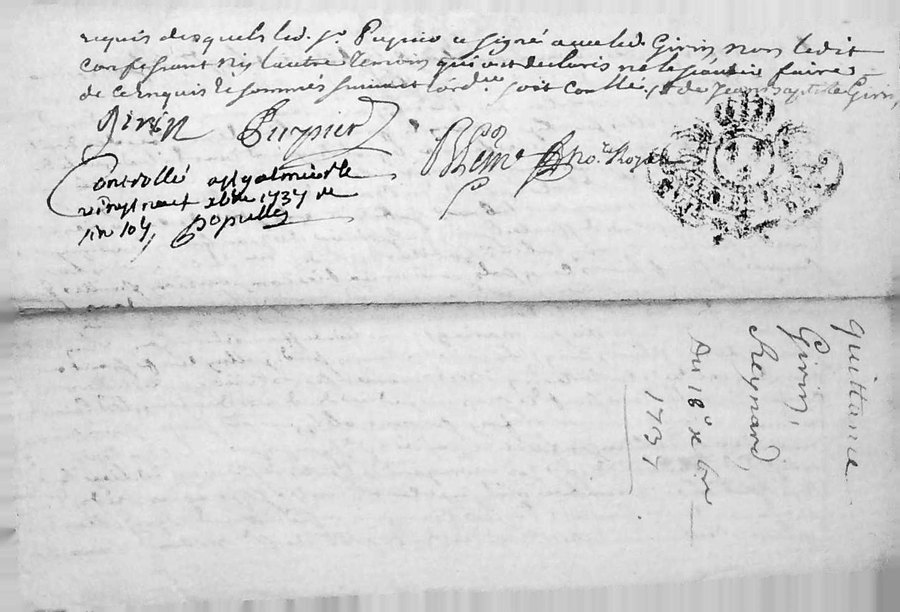 requis desquels led. Sr. Pupier a signé avec led. Girin non ledit
confessant ny l'autre temoin qui ont declarés ne le sçavoir faire
de ce enquis et sommés suivant l'ord.ce soit Conllé, de Jean Baptiste Girin,
Girin Pupier
no.re Royal
Controllé a st galmier le
vingt neuf xbre 1737
Quittance
Girin,
Reynard,
Au 18e xbre
1737